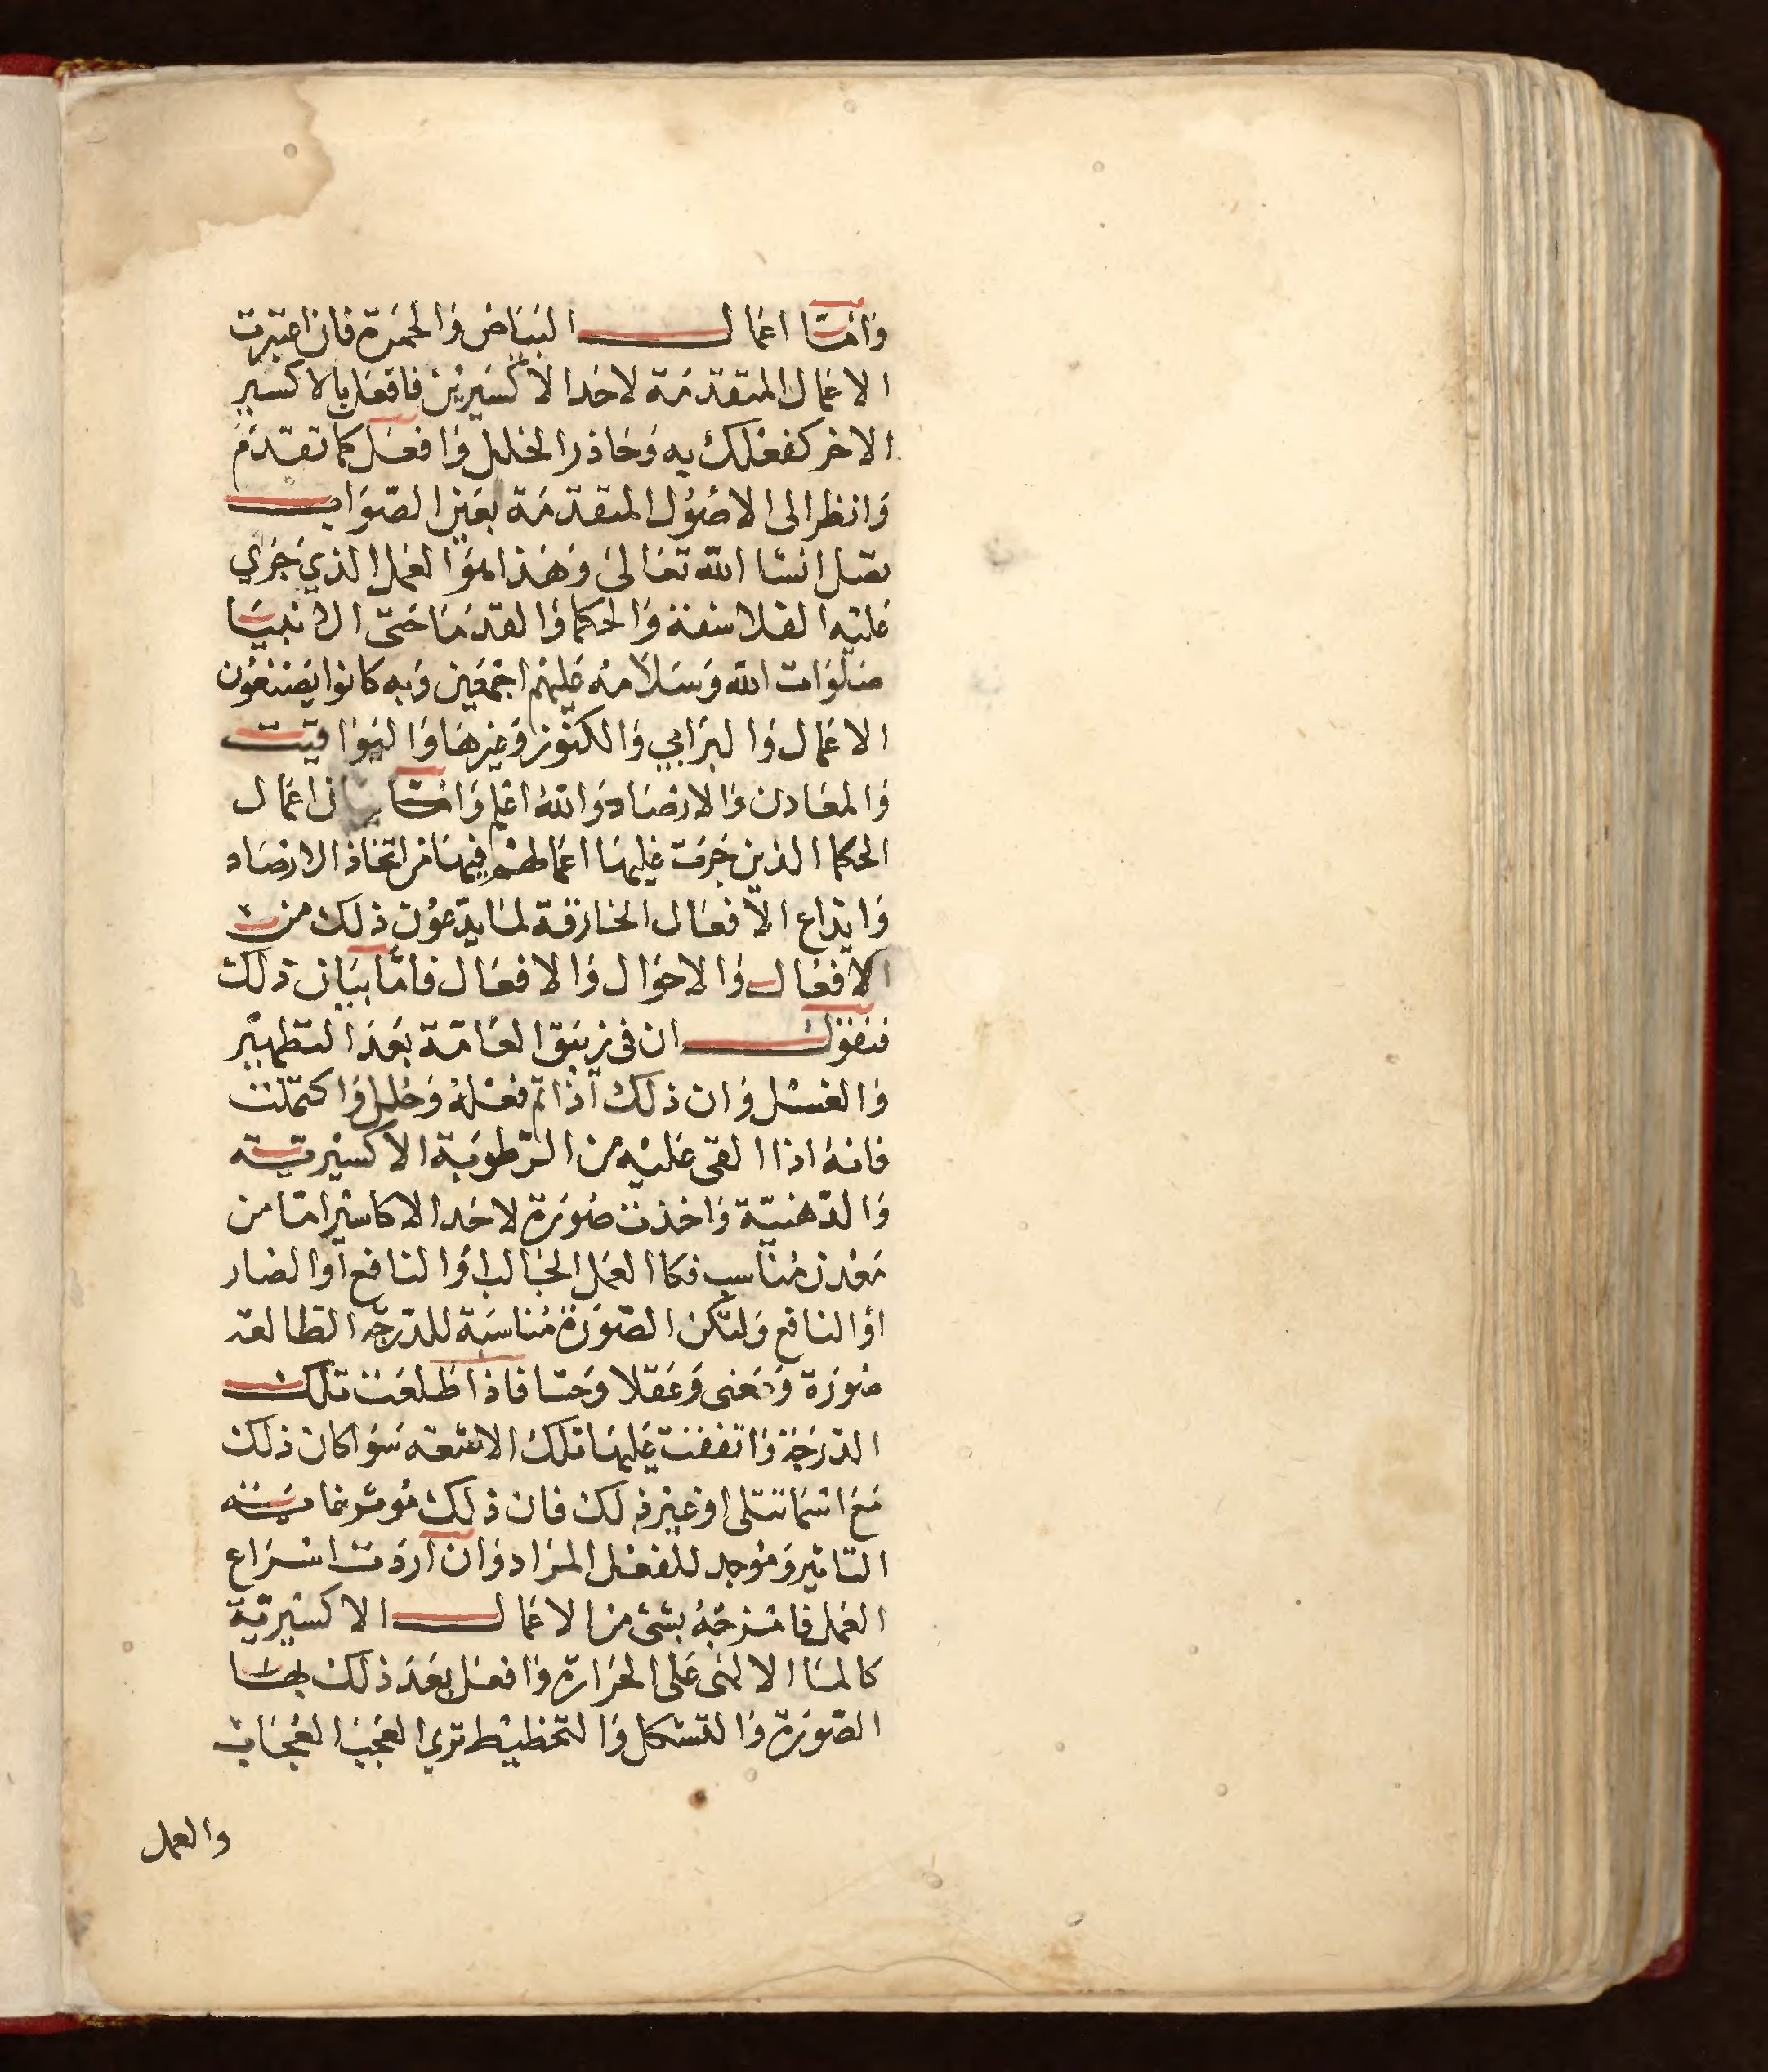 وَامّا اعمال البَيَاض وَالحمرَة فان اعتبرت
الاعمال المتقدمَة لاحَد الاكسَيرين فافعَل بالاكسير
الاخر كفعلك به وَحَاذر الخلل وَافعَل كما تقدّمَ
وَانظر الى الاصُول المتقدمَة بعَين الصّوَاب
تصل انشا الله تعَالىَ وَهَذا هوَ العَمل الذي جَرَي
عَليْه الفلاسفة وَالحكما وَالقدمَا حَتى الانبيَا
صَلوَات الله وَسَلامُه عَليهْم اجمَعين وَبه كانوا يَصْنعُون
الاعمَال وَالبرَابي وَالكنوز وَغيرهَا وَاليَوَاقيت
وَالمعَادن وَالارصَاد وَالله اعَلم وَامّا بيان اعمَال
الحكما الذين جَرَت عَليهَا اعمالهْم فيهَا من اتخاذ الارصَاد
وَابداع الافعَال الخارقة لما يدّعوُن ذلك من
الافعَال وَالاحوَال وَالافعَال فامّا بيَان ذلك
فنقول ان في زيبَق العَامّة بَعَد التطهيْر
وَالغسْل وَان ذلك اذا تم فعْلهُ وَحُلل وَاكتملت
فانهُ اذا القى عَليْه من الرّطوبَة الاكسيْريّة
وَالدّهنيّة وَاخذت صُورَة لاحَد الاكاسيْر امّا من
مَعْدن مُناسب فكا العَمل الجَالب اوَ النافع اوَ الضار
اوَ النافع وَلتكن الصّورَة مُناسَبة للدّرجَة الطالعَة
صُورَة وَمَعنى وَعَقلا وَحسّا فاذا طَلعَت تلك
الدّرَجَة وَاتففت عَليهَا تلك الاشعّه سَوَا كان ذلك
مَعَ اسْما تتلى اوْ غيْر ذلك فان ذلك مُوثر خاصّته
التاثير وَمُوجد للفعْل المرَاد وَان ارَدَت اسْرَاع
العَمل فامْزجهُ بشئ من الاعمال الاكسْيريّة
كالمَا الالهى عَلى الحرَارة وَافعَل بعَدَ ذلك بهَا
الصّورَة وَالتشكل وَالتخطيْط تري العَجَبَ العُجَاب
والعمل